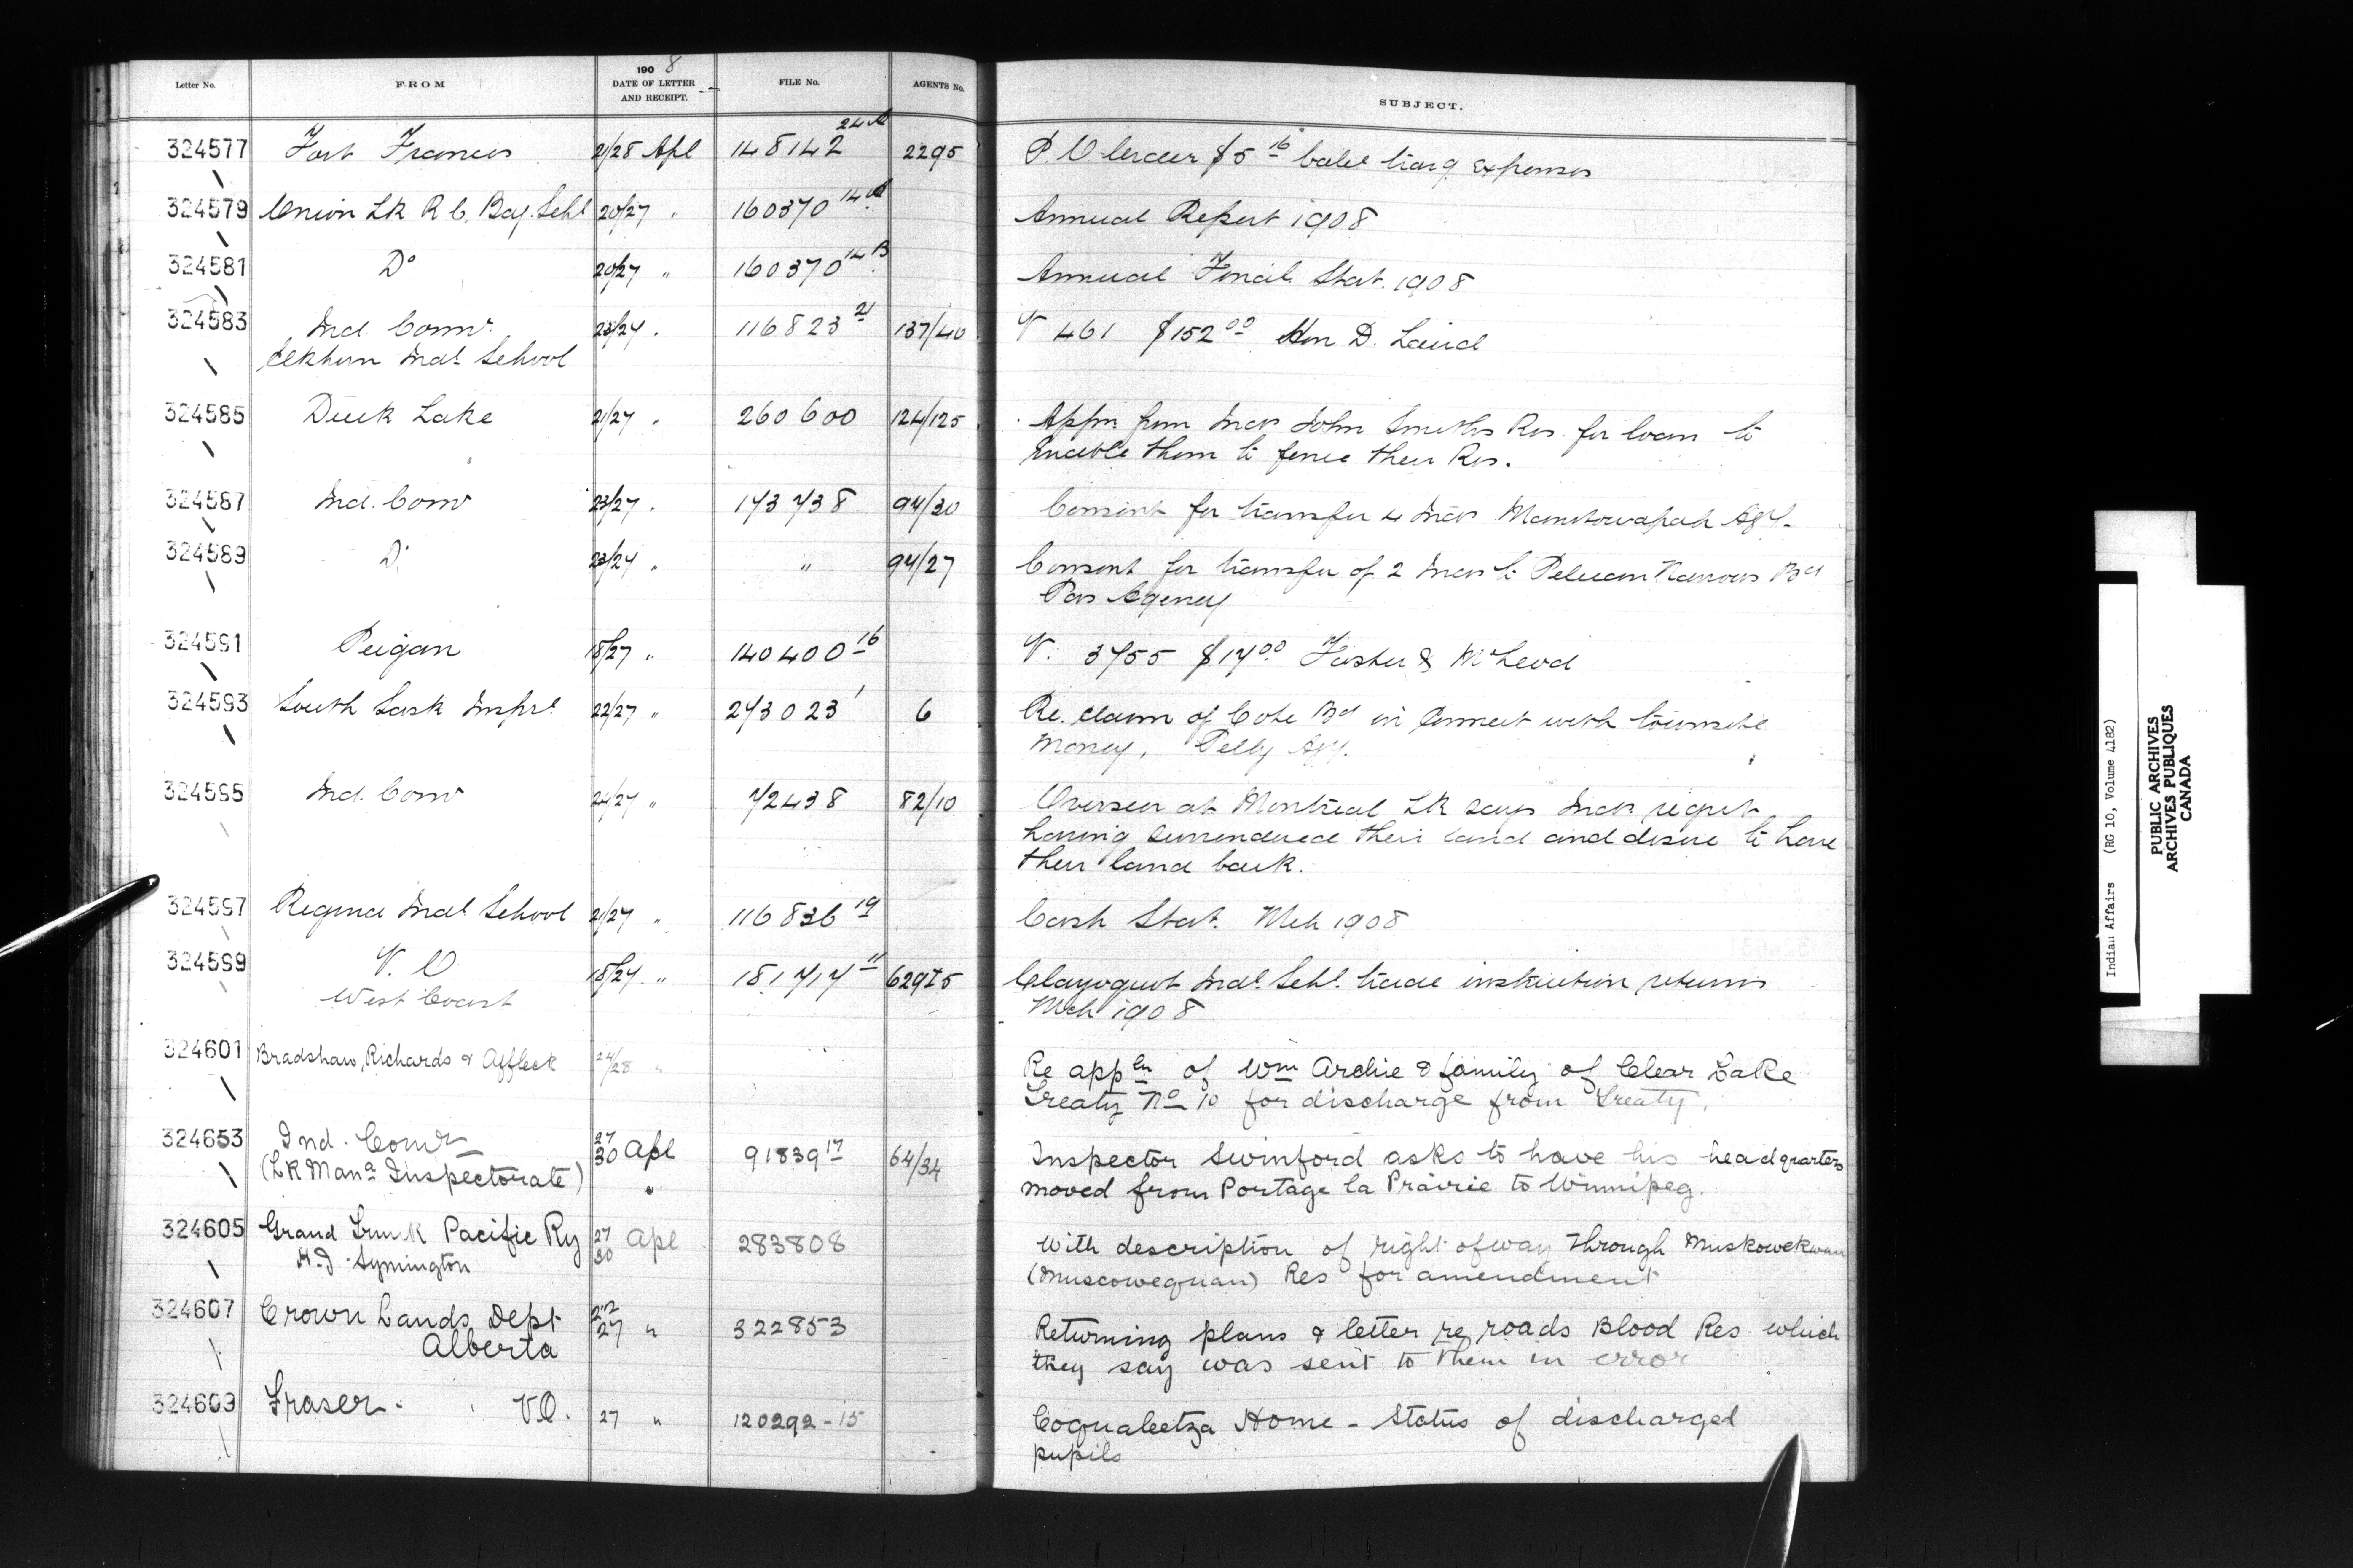 Letter No. FROM 1908 DATE OF LETTER AND RECEIPT. FILE No. AGENTS No. SUBJECT.
324577 Fort Frances 21/28 Apl 148142 24A 2295 P.O. order $5 16 trang expenses
324579 Onion Lk R C. Bdg. Schl 20/27 " 160370 14A Annual Report 1908
324581 Do 20/27 " 160370 14B Annual Finail Stat. 1908
324583 Ind. Comr. 23/27 . 116823 21 137/40 V 461 $152 00 Hon D. Laird
Elkhorn Indl School
324585 Duck Lake 21/27 " 260600 124/125 Appn from Inds John Smiths Res. for loan to
enable them to fence their Res.
324587 Ind. Comr 23/27 " 173738 94/30 Consent for transfer 4 Inds Manitowapah Agy.
324589 Do 23/27 " " 94/27 Consent for transfer of 2 Inds to Pelican Narrows Bd
Pas Agency
324591 Peigan 18/27 " 140400 16 V. 3755 $17 00 Foster & McLeod
324593 South Sask Insprt 22/27 " 273023 1 6 Re. claim of Cote Bd in connect with townsite
money, Pelly Agy.
324595 Ind. Comr 24/27 " 72438 82/10 Overseer at Montreal Lk says Inds regret
having surrendered their land and desire to have
their land back.
324597 Regina Indl School 21/27 " 116836 19 Cash Stat. Mch 1908
324599 V. O 18/27 " 181717 11 629I5 Clayoquot Indl. Schl. trade instruction returns
West Coast Mch 1908
324601 Bradshaw, Richards & Affleck 24/28 " Re appln of Wm Archie & family of Clear Lake
Treaty No 10 for discharge from Treaty.
324653 Ind. Comr 27/30 Apl 91839 17 64/34 Inspector Swinford asks to have his headquarters
(LK Mana Inspectorate) " moved from Portage la Prairie to Winnipeg.
324605 Grand Trunk Pacific Ry 27/30 Apl 283808 With description of right of way through Muskowekwan
H.J. Symington (Muscowequan) Res for amendment
324607 Crown Lands Dept 22/27 " 322853 Returning plans & letter re roads Blood Res which
Alberta they say was sent to them in error
324609 Fraser. V.O. 27 " 120292-15 Coqualeetza Home - Status of discharged
pupils
Indian Affairs (RG 10, Volume 4182)
PUBLIC ARCHIVES
ARCHIVES PUBLIQUES
CANADA